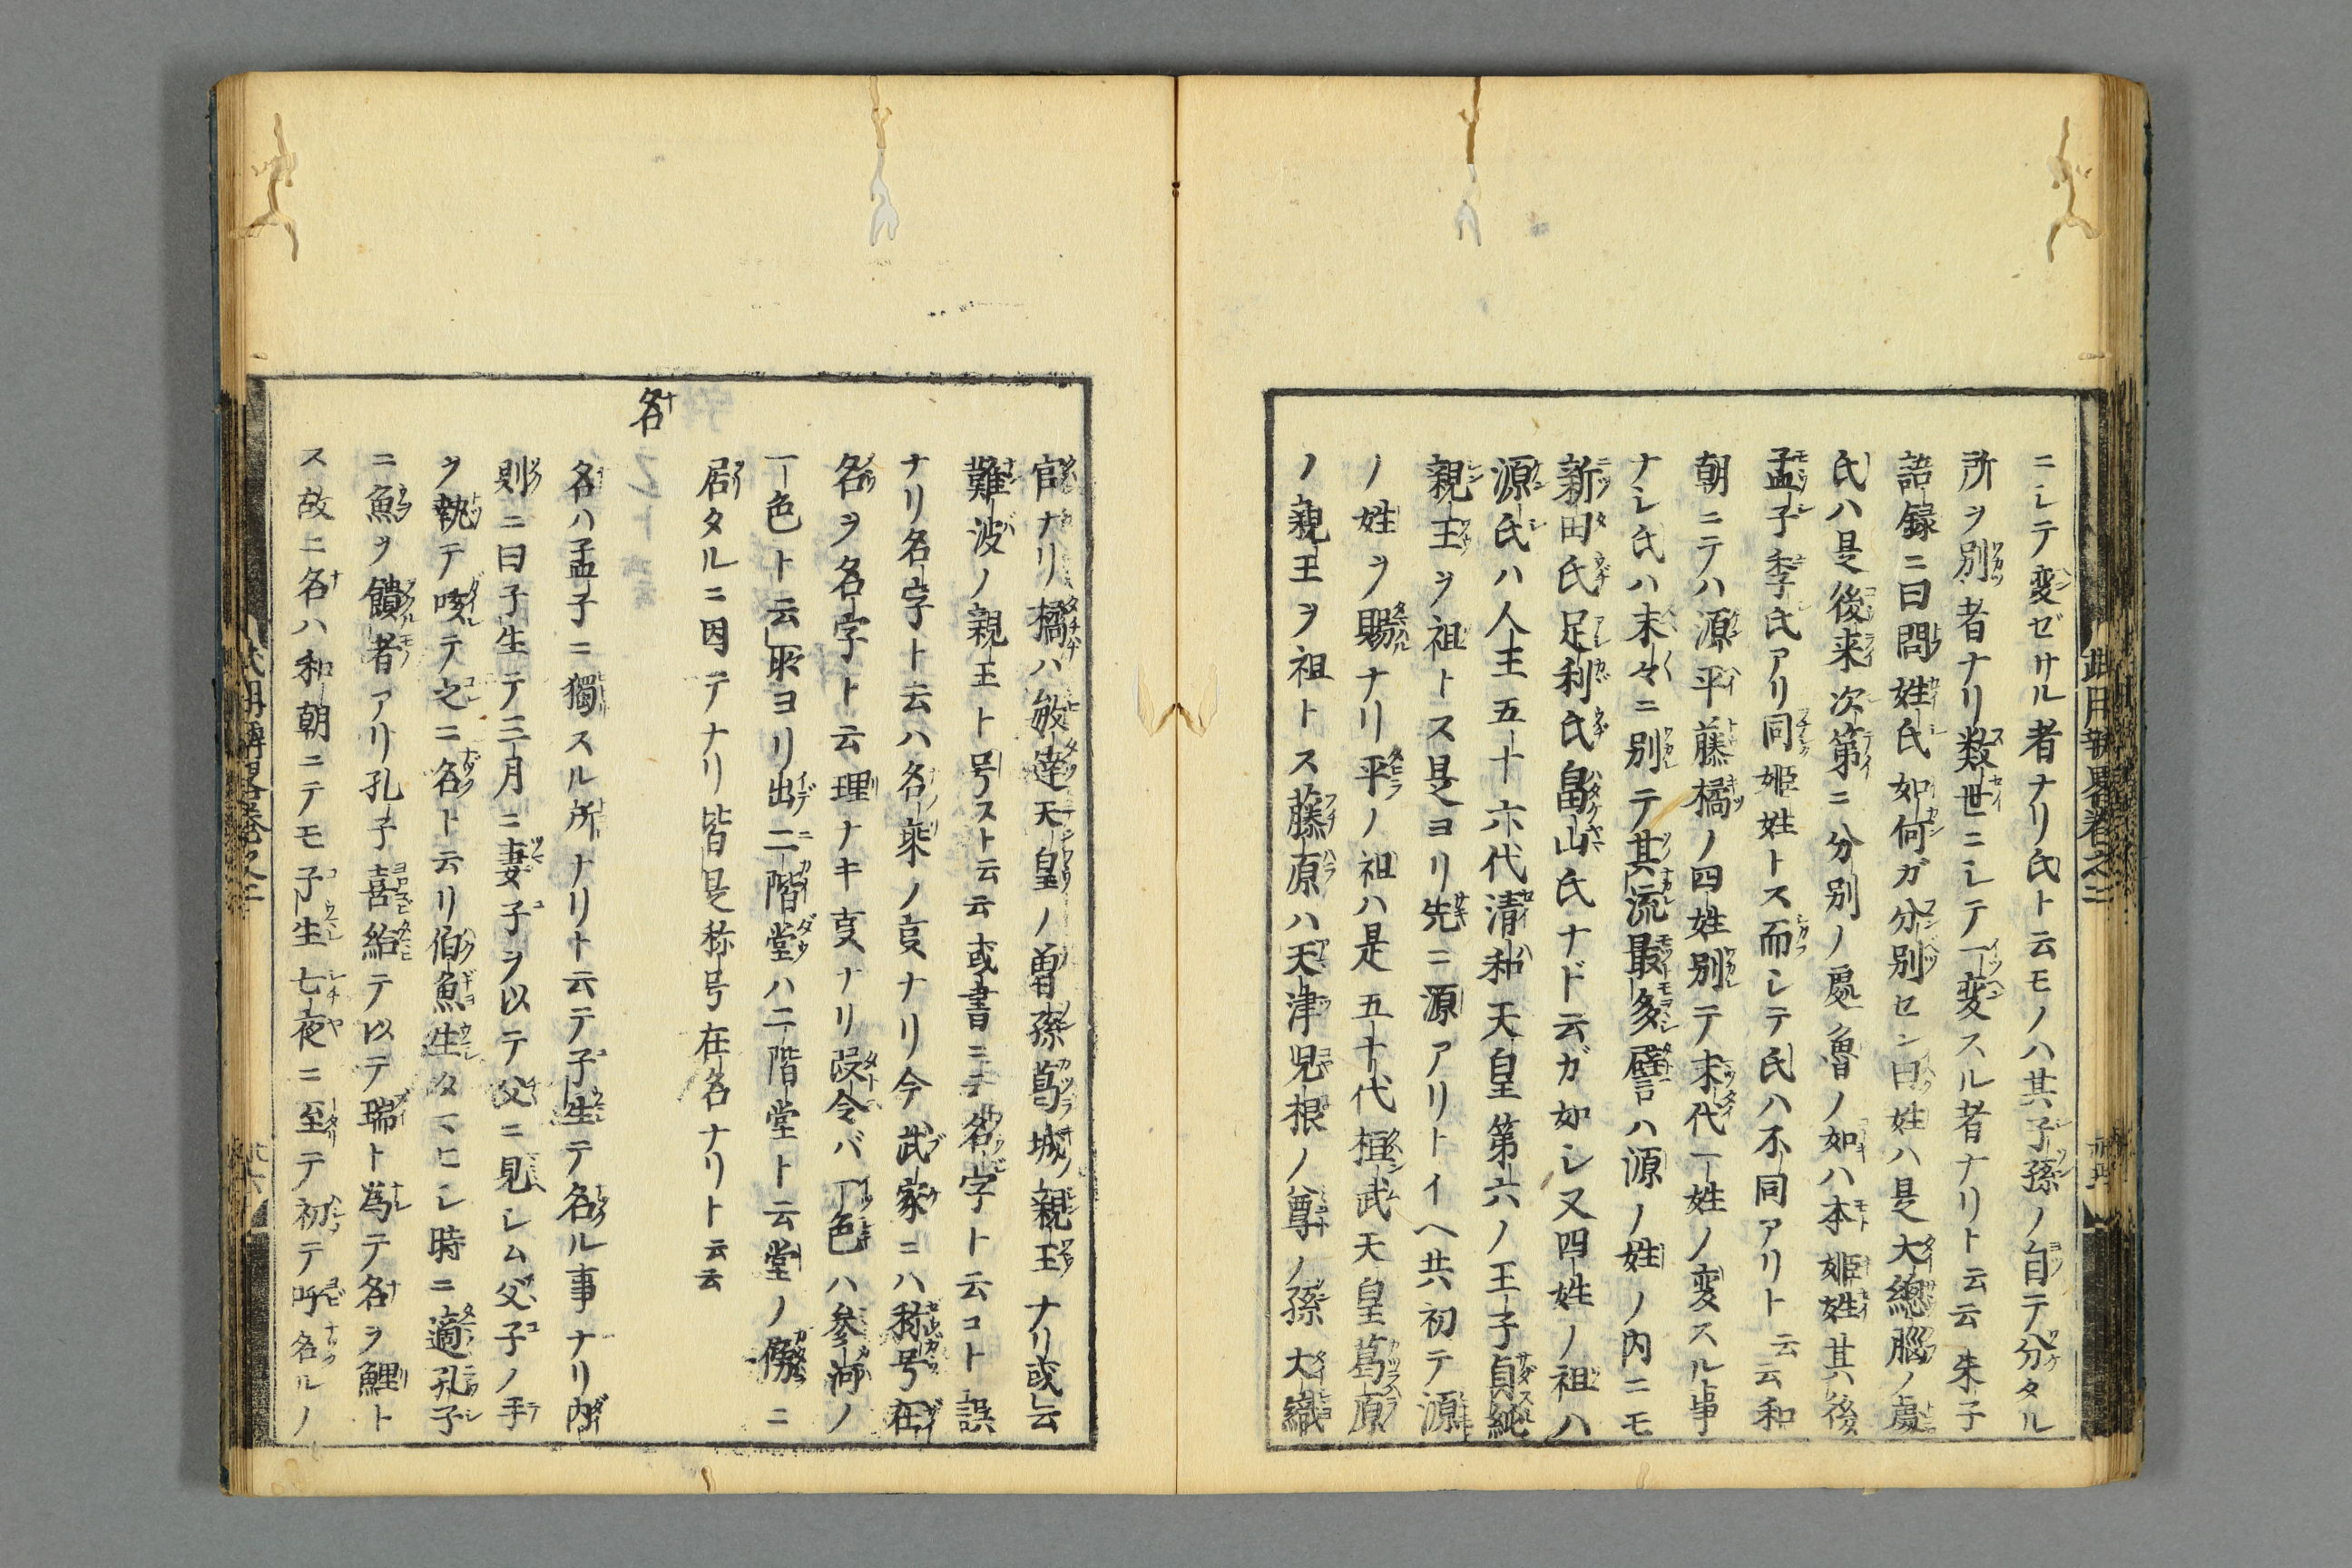 ニシテ変ゼサル者ナリ氏ト云モノハ其子孫ノ自テ分タル
所ヲ別者ナリ数世ニシテ一変スル者ナリト云云朱子
語録ニ曰問姓氏如何ガ分別セン曰姓ハ是大総脳ノ処
氏ハ是後来次第ニ分別ノ処魯ノ如ハ本姫姓其後
孟子季氏アリ同姫姓トス而シテ氏ハ不同アリト云云和
朝ニテハ源平藤橘ノ四姓別テ末代一姓ノ変スル事
ナシ氏ハ末々ニ別テ其流最多譬ハ源ノ姓ノ内ニモ
新田氏足利氏畠山氏ナド云ガ如シ又四姓ノ祖ハ
源氏ハ人王五十六代清和天皇第六ノ王子貞純
親王ヲ祖トス是ヨリ先ニ源アリトイヘ共初テ源
ノ姓ヲ賜ナリ平ノ祖ハ是五十代桓武天皇葛原
ノ親王ヲ祖トス藤原ハ天津児根ノ尊ノ孫大織
官ナリ橘ハ敏達天皇ノ曽孫葛城ノ親王ナリ或云
難波ノ親王ト号スト云云或書ニ云名字ト云コト誤
ナリ名字ト云ハ名乗ノ叓ナリ今武家ニハ称号在
名ヲ名字ト云理ナキ叓ナリ設令バ一色ハ参河ノ
一色ト云所ヨリ出二階堂ハ二階堂ト云堂ノ傍ニ
居タルニ因テナリ皆是称号在名ナリト云云
名
名ハ孟子ニ獨スル所ナリト云テ子生テ名ル事ナリ内
則ニ曰子生テ三月ニ妻子ヲ以テ父ニ見シム父子ノ手
ヲ執テ咳テ之ニ名ト云リ伯魚生タマヒシ時ニ適孔子
ニ魚ヲ饋者アリ孔子喜給テ以テ瑞ト為テ名ヲ鯉ト
ス故ニ名ハ和朝ニテモ子生七夜ニ至テ初テ呼名ルノ